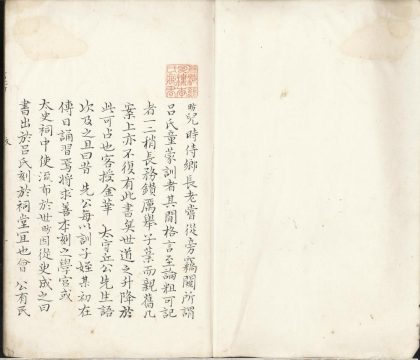 昉兒時侍鄉長老嘗從旁竊闚所謂
呂氏童蒙訓者其間格言至論粗可記
者一二稍長務鑽厲舉子業而親舊几
案上亦不復有此書矣世道之升降於
此可占也客授金華 太守丘公先生語
次及之且曰昔 先公每以訓子姪某初在
傅日誦習焉將求善本刻之學宮或
太史祠中使流布於世昉因從臾成之曰
書出於呂氏刻於祠堂宜也會 公有民